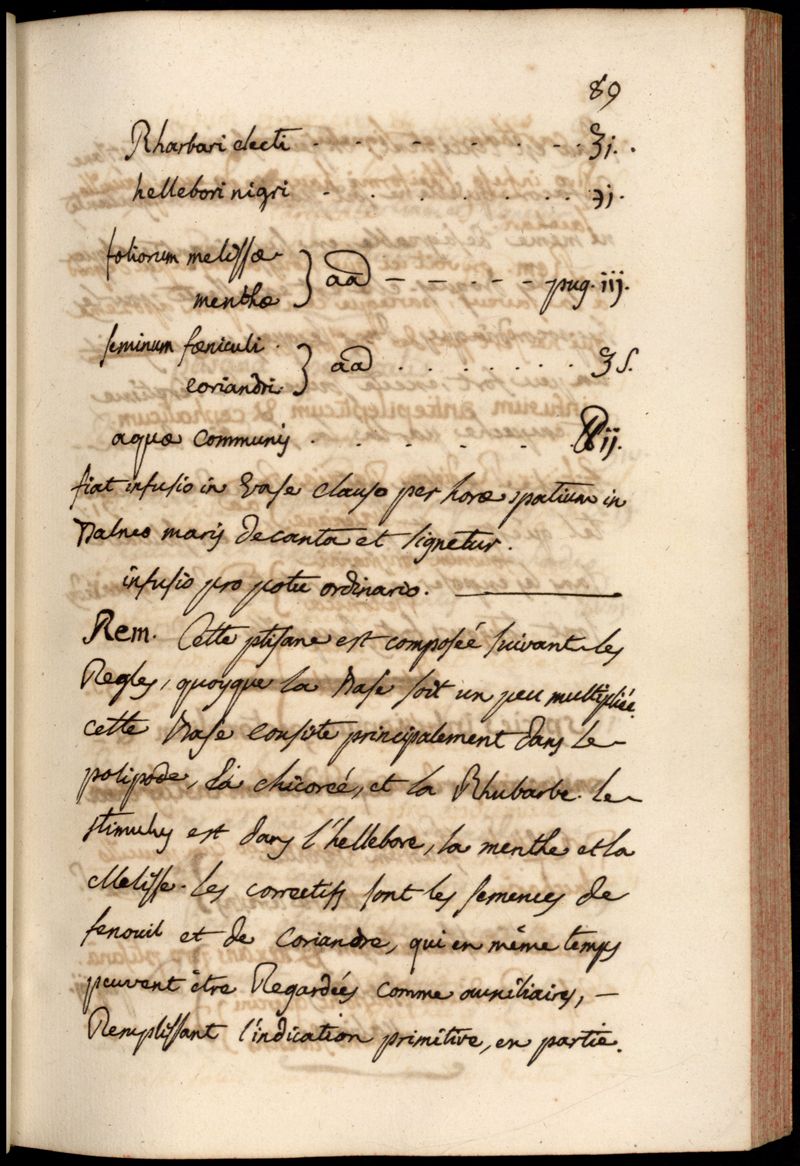 89
Rharbari electi - - - - - - ʒj.
hellebori nigri - . . . . . ℈j.
foliorum melissæ
menthæ } aā - - - - - pug. iij.
seminum fœniculi
coriandri } aā . . . . . . . ʒ s.
aquæ communis . . . . . ℔ij.
fiat infusio in Vase clauso per horæ spatium in
Balneo maris decanta et signetur.
infusio pro potu ordinario. ———
Rem. Cette ptisane est composée suivant les
Regles, quoyque la Base soit un peu multipliée.
cette Base consiste principalement dans le
polipode, la chicorée, et la Rhubarbe. le
stimulus est dans l'hellebore, la menthe et la
Melisse. les correctifs sont les semences de
fenouil et de coriandre, qui en même temps
peuvent être Regardées comme auxiliaires, —
Remplissant l'indication primitive, en partie.